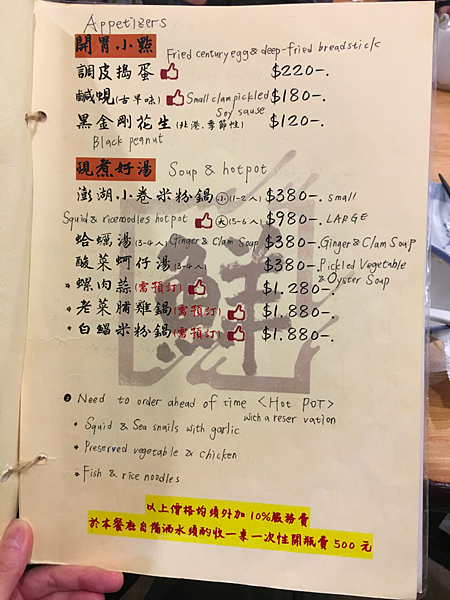 Appetizers
開胃小點 Fried century egg & deep-fried breadstick
調皮搗蛋 $220-.
鹹蜆(古早味) Small clam pickled $180-.
Soy sause
黑金剛花生(北港.季節性) $120-.
Black peanut
現煮好湯 Soup & hotpot
澎湖小卷米粉鍋(小)(1-2人) $380-. small
Squid & rice noodles hotpot (大)(5-6人) $980-. LARGE
蛤蠣湯(3-4人) Ginger & Clam Soup $380-. Ginger & Clam Soup
酸菜蚵仔湯(3-4人) $380-. Pickled Vegetable
& Oyster Soup
* 螺肉蒜(需預訂) $1.280-.
* 老菜脯雞鍋(需預訂) $1.880-.
* 白鯧米粉鍋(需預訂) $1.880-.
鮮
Need to order ahead of time <Hot POT>
with a reservation
* Squid & Sea snails with garlic
* Preserved vegetable & chicken
* Fish & rice noodles
以上價格均須外加10%服務費
於本餐廳自備酒水須酌收一桌一次性開瓶費500元